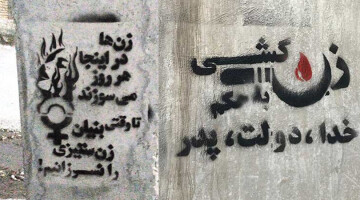 زن‌ها
در اینجا
هر روز
می‌سوزند
تا وقت
بنیان
زن ستیزی
را
زن کشی
به حکم
خدا، دولت، پدر